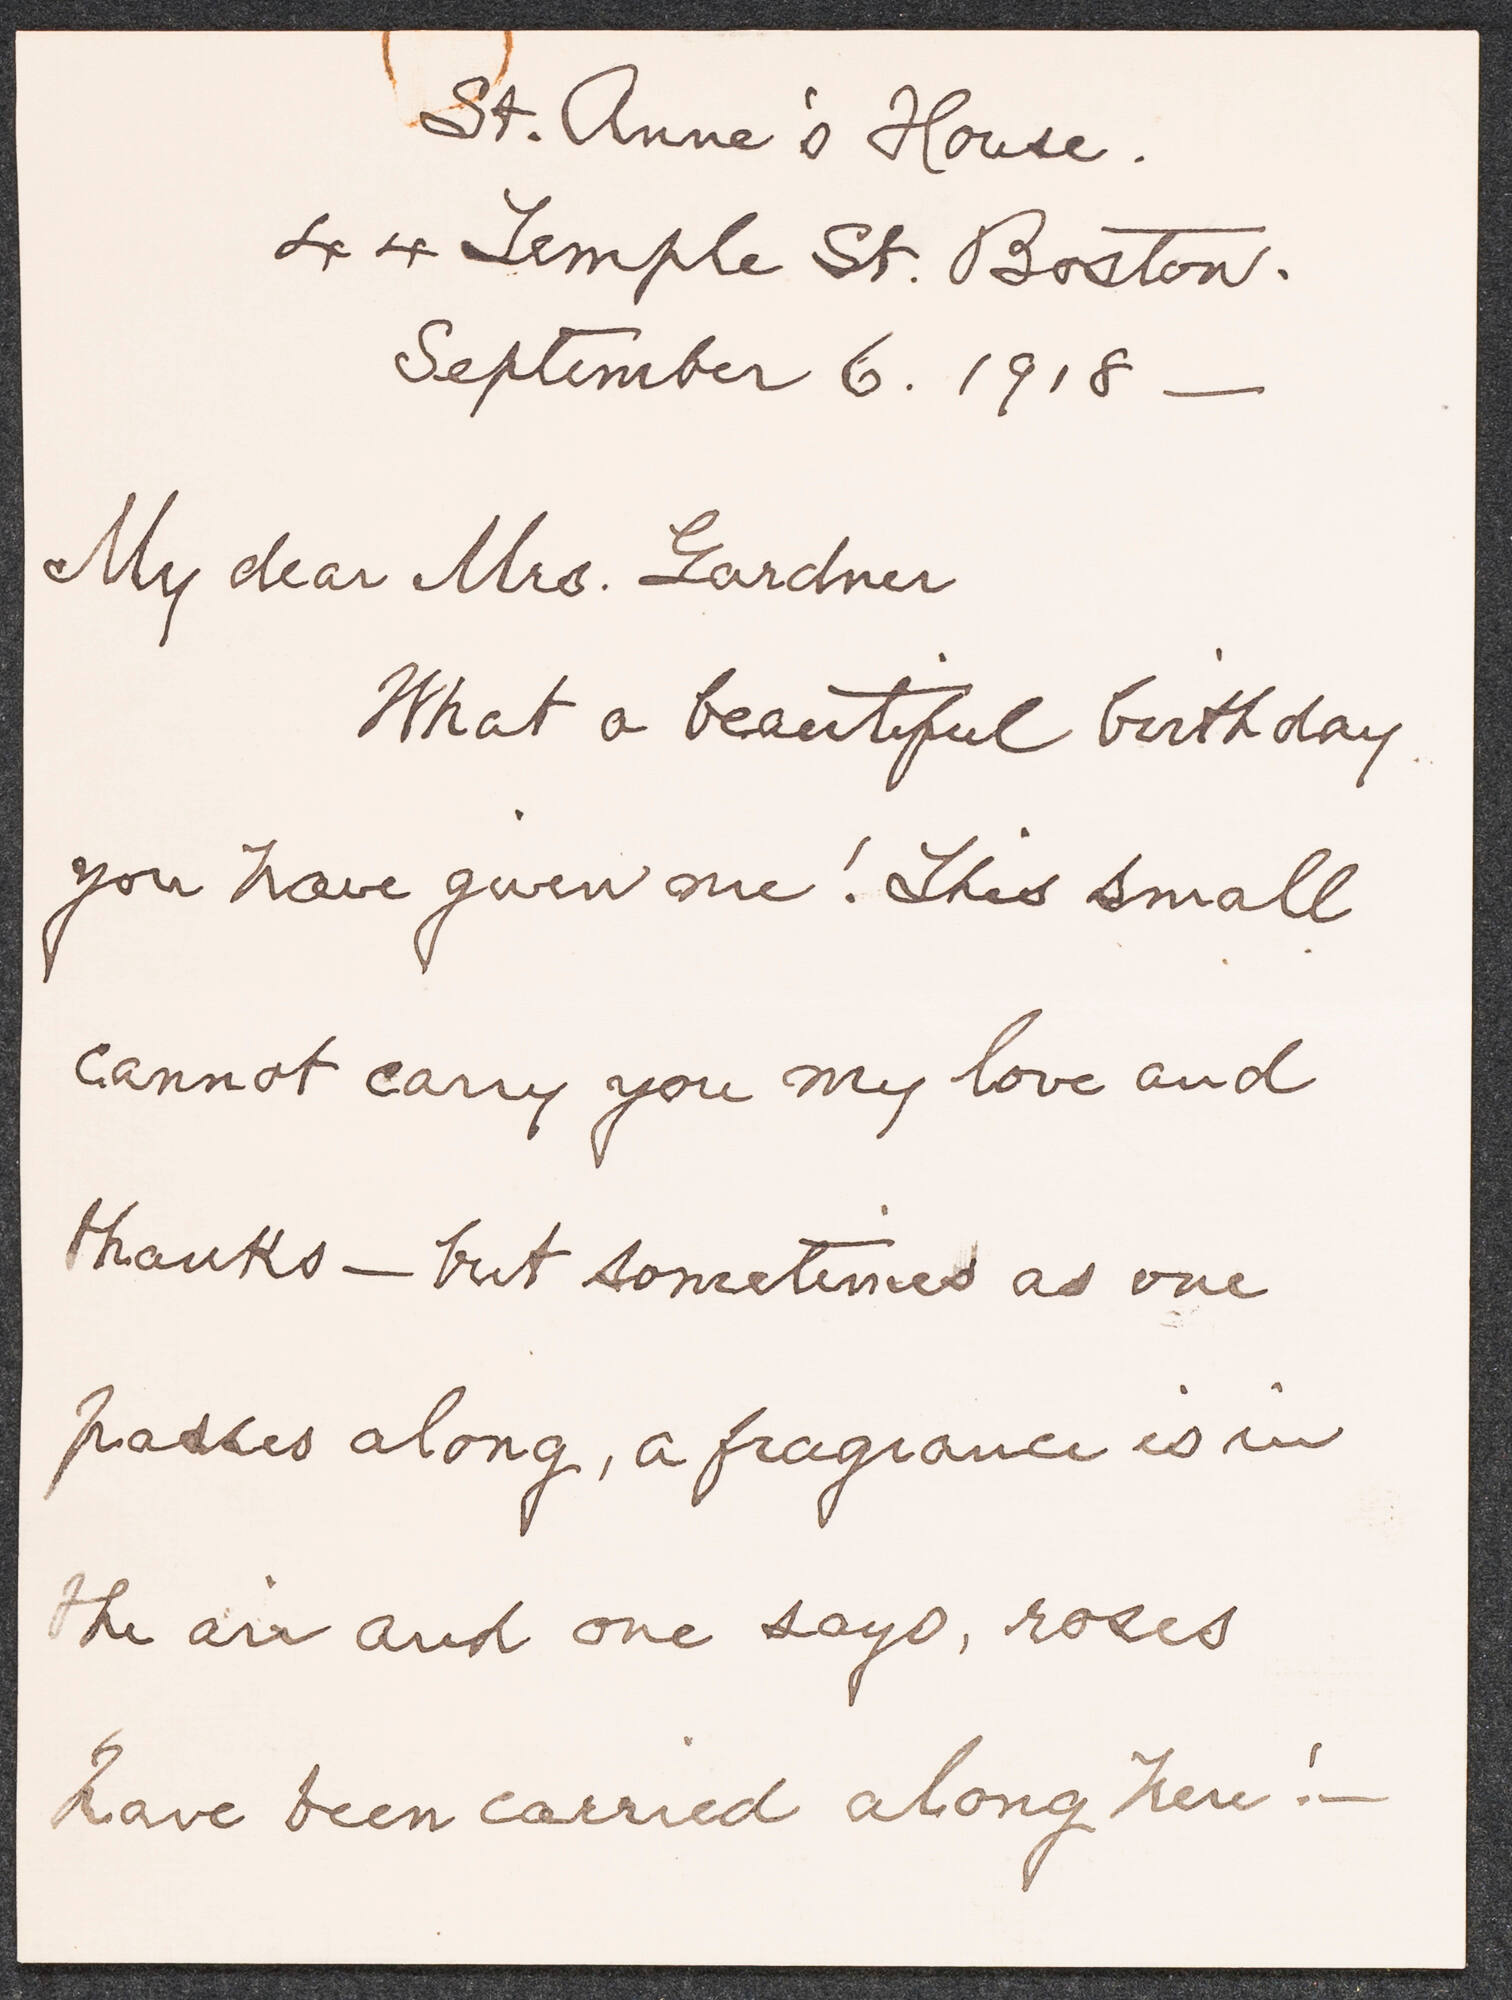 St. Anne's House.
44 Temple St. Boston.
September 6. 1918 —
My dear Mrs. Gardner
What a beautiful birthday
you have given me! This small
cannot carry you my love and
thanks — but sometimes as one
passes along, a fragrance is in
the air and one says, roses
have been carried along here! —